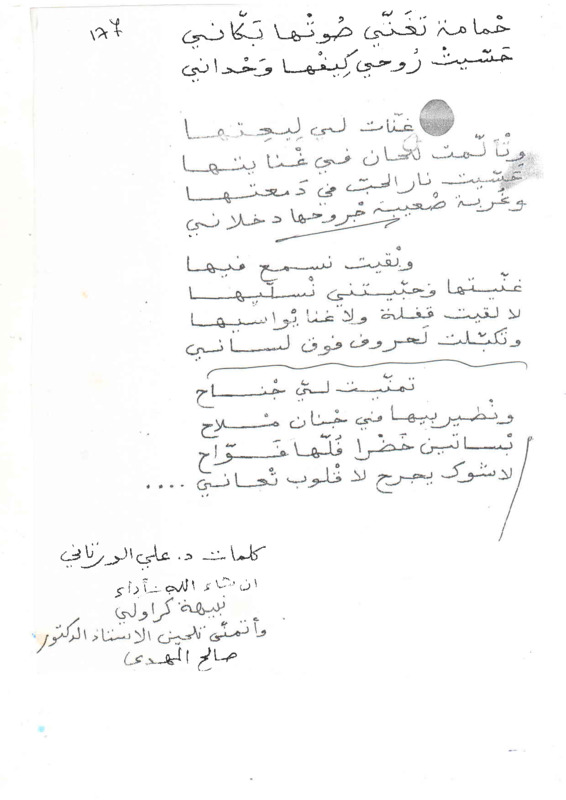 حْمامة تَغَنّي صُوتْها بَكّاني
حَسّيتْ رُوحي كِيفْها وَحْداني
غِنّات لي لِيعِتها
وتْألّمت للحان في غْنايتها
حَسّيت نار الحبّ في دَمعتها
وغُربة صْعيبة جْروحها دخلاني
ونْقيت نسمع فيها
غنّيتها وحبّيتني نْسلّيها
لا لقيت قفلة ولا غنا يْواسيها
وتكبّلت لَحروف فوق لساني
تمنّيت ليّ جْناح
ونْطير بيها في جْنان مْلاح
بْساتين خَضْرا فُلّها فَوّاح
لا شوك يجرح لا قْلوب تْعاني ....
كلمات د. علي الورتاني
ان شاء الله بأداء
نبيهة كراولي
وأتمنّى تلحين الاستاذ الدكتور
صالح المهدي